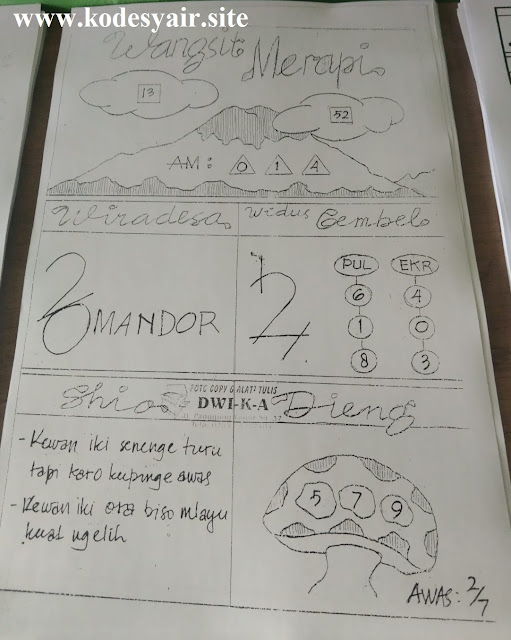 www.kodesyair.site
Wangsit Merapi
13
52
AM : 0 1 4
Wiradesa
Wedus Gembel
MANDOR
PUL EKR
6 4
1 0
8 3
Shio
FOTO COPY & ALAT2 TULIS
DWI-K-A
Dieng
- Kewan iki senenge turu
tapi karo kupinge awas
- Kewan iki ora biso mlayu
kuat ngelih
5 7 9
AWAS : 2/7